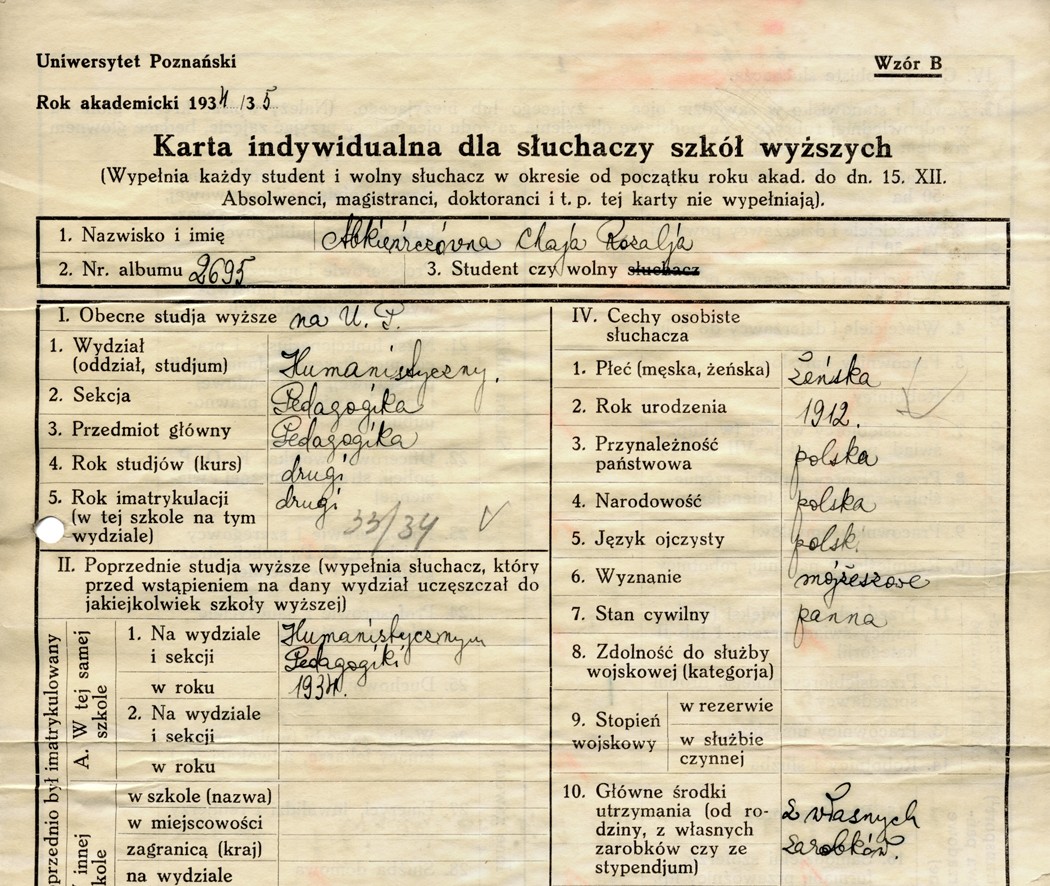 Uniwersytet Poznański
Wzór B
Rok akademicki 1934/35
Karta indywidualna dla słuchaczy szkół wyższych
(Wypełnia każdy student i wolny słuchacz w okresie od początku roku akad. do dn. 15. XII.
Absolwenci, magistranci, doktoranci i t. p. tej karty nie wypełniają).
1. Nazwisko i imię Chaja Rozalja
2. Nr. albumu 2695
3. Student czy wolny słuchacz
I. Obecne studja wyższe na U. P.
1. Wydział
(oddział, studjum) Humanistyczny.
2. Sekcja Pedagogika
3. Przedmiot główny Pedagogika
4. Rok studjów (kurs) drugi
5. Rok imatrykulacji drugi
(w tej szkole na tym 33/34
wydziale)
II. Poprzednie studja wyższe (wypełnia słuchacz, który
przed wstąpieniem na dany wydział uczęszczał do
jakiejkolwiek szkoły wyższej)
oprzednio był imatrykulowany
A. W tej samej
szkole
1. Na wydziale Humanistycznym
i sekcji Pedagogiki
w roku 1934.
2. Na wydziale
i sekcji
w roku
innej
kole
w szkole (nazwa)
w miejscowości
zagranicą (kraj)
na wydziale
IV. Cechy osobiste
słuchacza
1. Płeć (męska, żeńska) żeńska
2. Rok urodzenia 1912.
3. Przynależność
państwowa polska
4. Narodowość polska
5. Język ojczysty polsk.
6. Wyznanie mojżeszowe
7. Stan cywilny panna
8. Zdolność do służby
wojskowej (kategorja)
9. Stopień
wojskowy
w rezerwie
w służbie
czynnej
10. Główne środki
utrzymania (od ro- z własnych
dziny, z własnych zarobków.
zarobków czy ze
stypendjum)